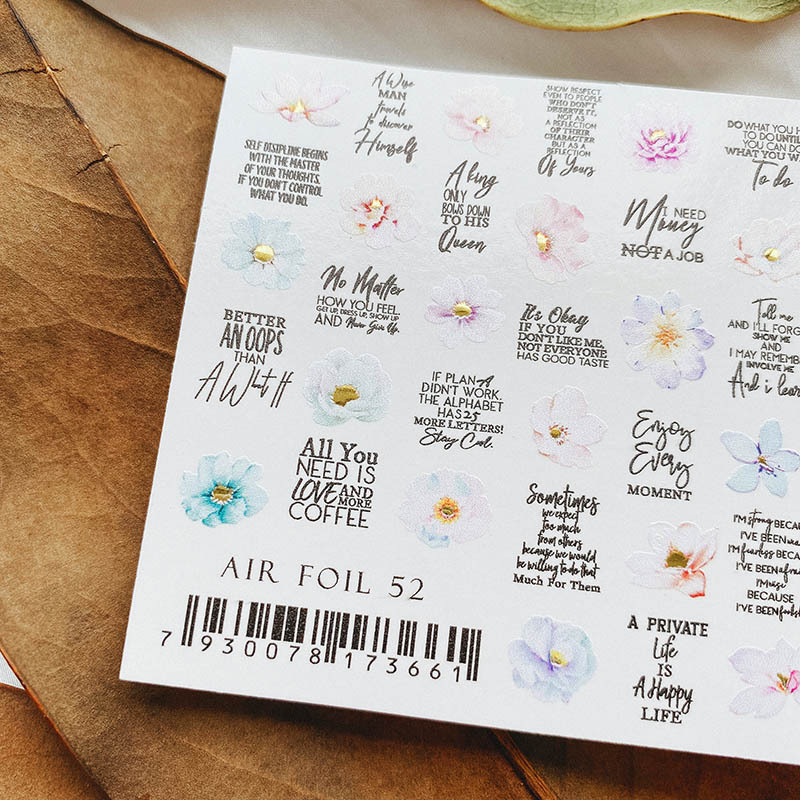 A Wise
MAN
travels
to discover
Himself
SHOW RESPECT
EVEN TO PEOPLE
WHO DON'T
DESERVE IT,
NOT AS
A REFLECTION
OF THEIR
CHARACTER
BUT AS A
REFLECTION
Of Yours
DO WHAT YOU H
TO DO UNTIL
YOU CAN DO
WHAT YOU W
To do
SELF DISCIPLINE BEGINS
WITH THE MASTER
OF YOUR THOUGHTS.
IF YOU DON'T CONTROL
WHAT YOU DO.
A king
ONLY
BOWS DOWN
TO HIS
Queen
I NEED
Money
NOT A JOB
No Matter
HOW YOU FEEL.
GET UP, DRESS UP, SHOW UP
AND Never Give Up.
It's Okay
IF YOU
DON'T LIKE ME,
NOT EVERYONE
HAS GOOD TASTE
Tell me
AND I'LL FORG
SHOW ME
AND
I MAY REMEMB
INVOLVE ME
And i lear
BETTER
AN OOPS
THAN
A What If
IF PLAN A
DIDN'T WORK.
THE ALPHABET
HAS 25
MORE LETTERS!
Stay Cool.
Enjoy
Every
MOMENT
All You
NEED IS
LOVE AND
MORE
COFFEE
Sometimes
we expect
too much
from others
because we would
be willing to do that
Much For Them
I'm strong BECAU
I'VE BEEN wea
I'm fearless BECAU
I'VE BEEN afra
I'm wise
BECAUSE
I'VE BEEN foolish
A PRIVATE
Life
IS
A Happy
LIFE
AIR FOIL 52
7 930078 173661